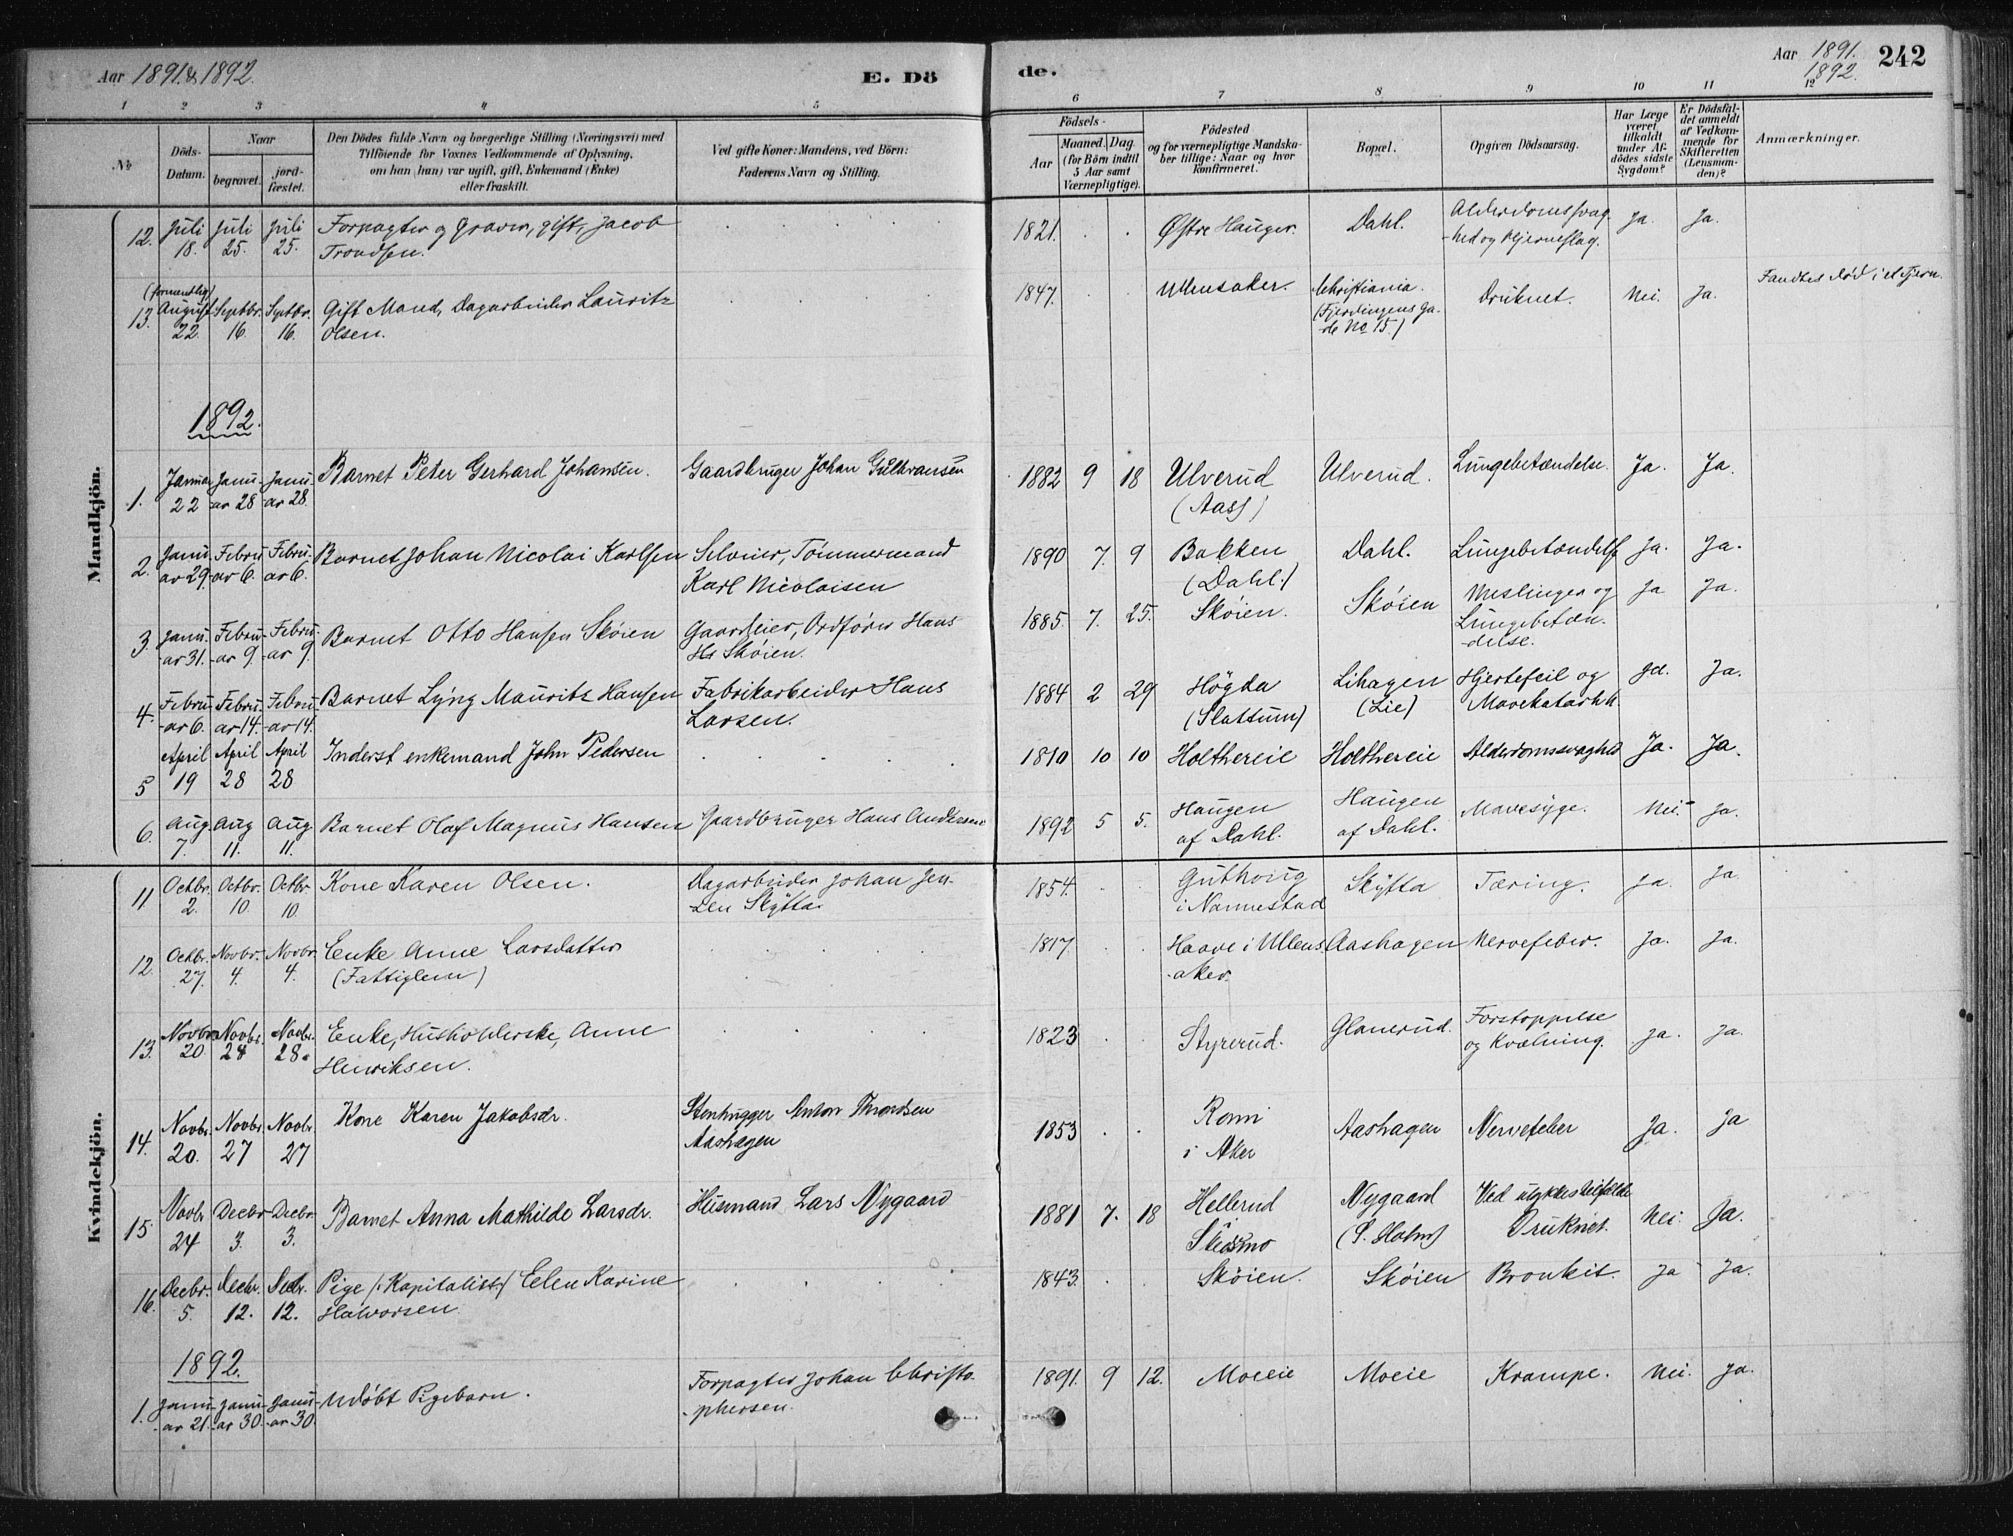 Aar 1891 & 1892. E. Dö de. Aar 1891. 1892. 242
1 2 3 4 5 6 7 8 9 10 11 12
No
Döds-Datum.
Naar
begravet.
jord-fæstet.
Den Dödes fulde Navn og borgerlige Stilling (Næringsvei) med
Tilföiende for Voxnes Vedkommende af Oplysning,
om han (hun) var ugift, gift, Enkemand (Enke)
eller fraskilt.
Ved gifte Koner: Mandens, ved Börn:
Faderens Navn og Stilling.
Födsels-
Aar
Maaned. Dag.
(for Börn indtil
5 Aar samt
Værnepligtige).
Födested
og for værnepligtige Mandska-
ber tillige: Naar og hvor
konfirmeret.
Bopæl.
Opgiven Dödsaarsag.
Har Læge
været
tilkaldt
under Af-
dödes sidste
Sygdom?
Er Dödsfal-
det anmeldt
af Vedkom-
mende for
Skifteretten
(Lensman-
den)?
Anmærkninger.
Mandkjön.
12. Juli 18. Juli 25. Juli 25. Forpagter og Graver, gift, Jacob Trondsen. 1821. Østre Hauger. Dahl. Alderdomssvag-hed og Hjerneslag. Ja. Ja.
13. (formentlig) August 22. Septbr. 16. Septbr. 16. Gift Mand, Dagarbeider Lauritz Olsen. 1847. Ullensaker. Christiania. (Fjerdingens Ga-de No 15.) Druknet. Nei. Ja. Fandtes død i et Tjern.
1892.
1. Januar 22 Janu-ar 28 Janu-ar 28. Barnet Peter Gerhard Johansen. Gaardbruger Johan Gulbransen 1882 9 18 Ulverud (Aas) Ulverud. Lungebetændelse. Ja. Ja.
2. Janu-ar 29. Febru-ar 6. Febru-ar 6. Barnet Johan Nicolai Karlsen Selveier, Tømmermand Karl Nicolaisen 1890 7. 9 Bakken (Dahl.) Dahl. Lungebetændelse Ja. Ja.
3. Janu-ar 31. Febru-ar 9. Febru-ar 9. Barnet Otto Hansen Skøien Gaardeier, Ordfører Hans Hs Skøien. 1885. 7. 25. Skøien. Skøien Meslinger og Lungebetæn-delse. Ja Ja.
4. Febru-ar 6. Febru-ar 14. Febru-ar 14. Barnet Lyng Mauritz Hansen Fabrikarbeider Hans Larsen. 1884 2 29 Høgda (Slattum) Lihagen (Lie) Hjertefeil og Mavekatarhh Ja.
5 April 19 April 28 April 28 Inderst enkemand John Pedersen 1810 10 10 Holthereie Holthereie Alderdomssvaghed Ja. Ja.
6. Aug. 7. Aug 11. Aug 11. Barnet Olaf Magnus Hansen Gaardbruger Hans Andersen 1892 5 5. Haugen af Dahl. Haugen af Dahl. Mavesyge. Nei. Ja.
Kvindekjön.
11 Octbr. 2. Octbr. 10. Octbr. 10. Kone Karen Olsen. Dagarbeider Johan Jen-sen Skytta. 1854. i Nannestad Skytta Tæring. Ja. Ja.
12. Octbr. 27. Novbr. 4. Novbr. 4. Enke Anne Larsdatter (Fattiglem) 1817. Haave i Ullens-aker. Aashagen Nervefeber. Ja. Ja.
13. Novbr. 20. Novbr. 28 Novbr. 28. Enke, Husholderske, Anne Henriksen. 1823 Styrerud. Glanerud. Forstoppelse og Kvælning. Ja. Ja.
14. Novbr. 20. Novbr. 27 Novbr. 27 Kone Karen Jakobsdr. Stenhugger Anton Throndsen Aashagen 1853 i Aker Aashagen Nervefeber Ja. Ja
15. Novbr 24 Decbr 3. Decbr. 3. Barnet Anna Mathilde Larsdr. Husmand Lars Nygaard 1881 7. 18 Hellerud Skedsmo Nygaard (S. Holm) Ved ulykkestilfælde Druknet. Nei. Ja.
16. Decbr. 5. Decbr. 12. Decbr. 12. Pige (Kapitalist) Eelen Karine Halvorsen. 1843. Skøien. Skøien Bronkit. Ja Ja.
1892.
1. Janu-ar 21. Janu-ar 30. Janu-ar 30 Udøbt Pigebarn. Forpagter Johan Christo-phersen. 1891. 9 12. Moeie Moeie Krampe. Nei. Ja.